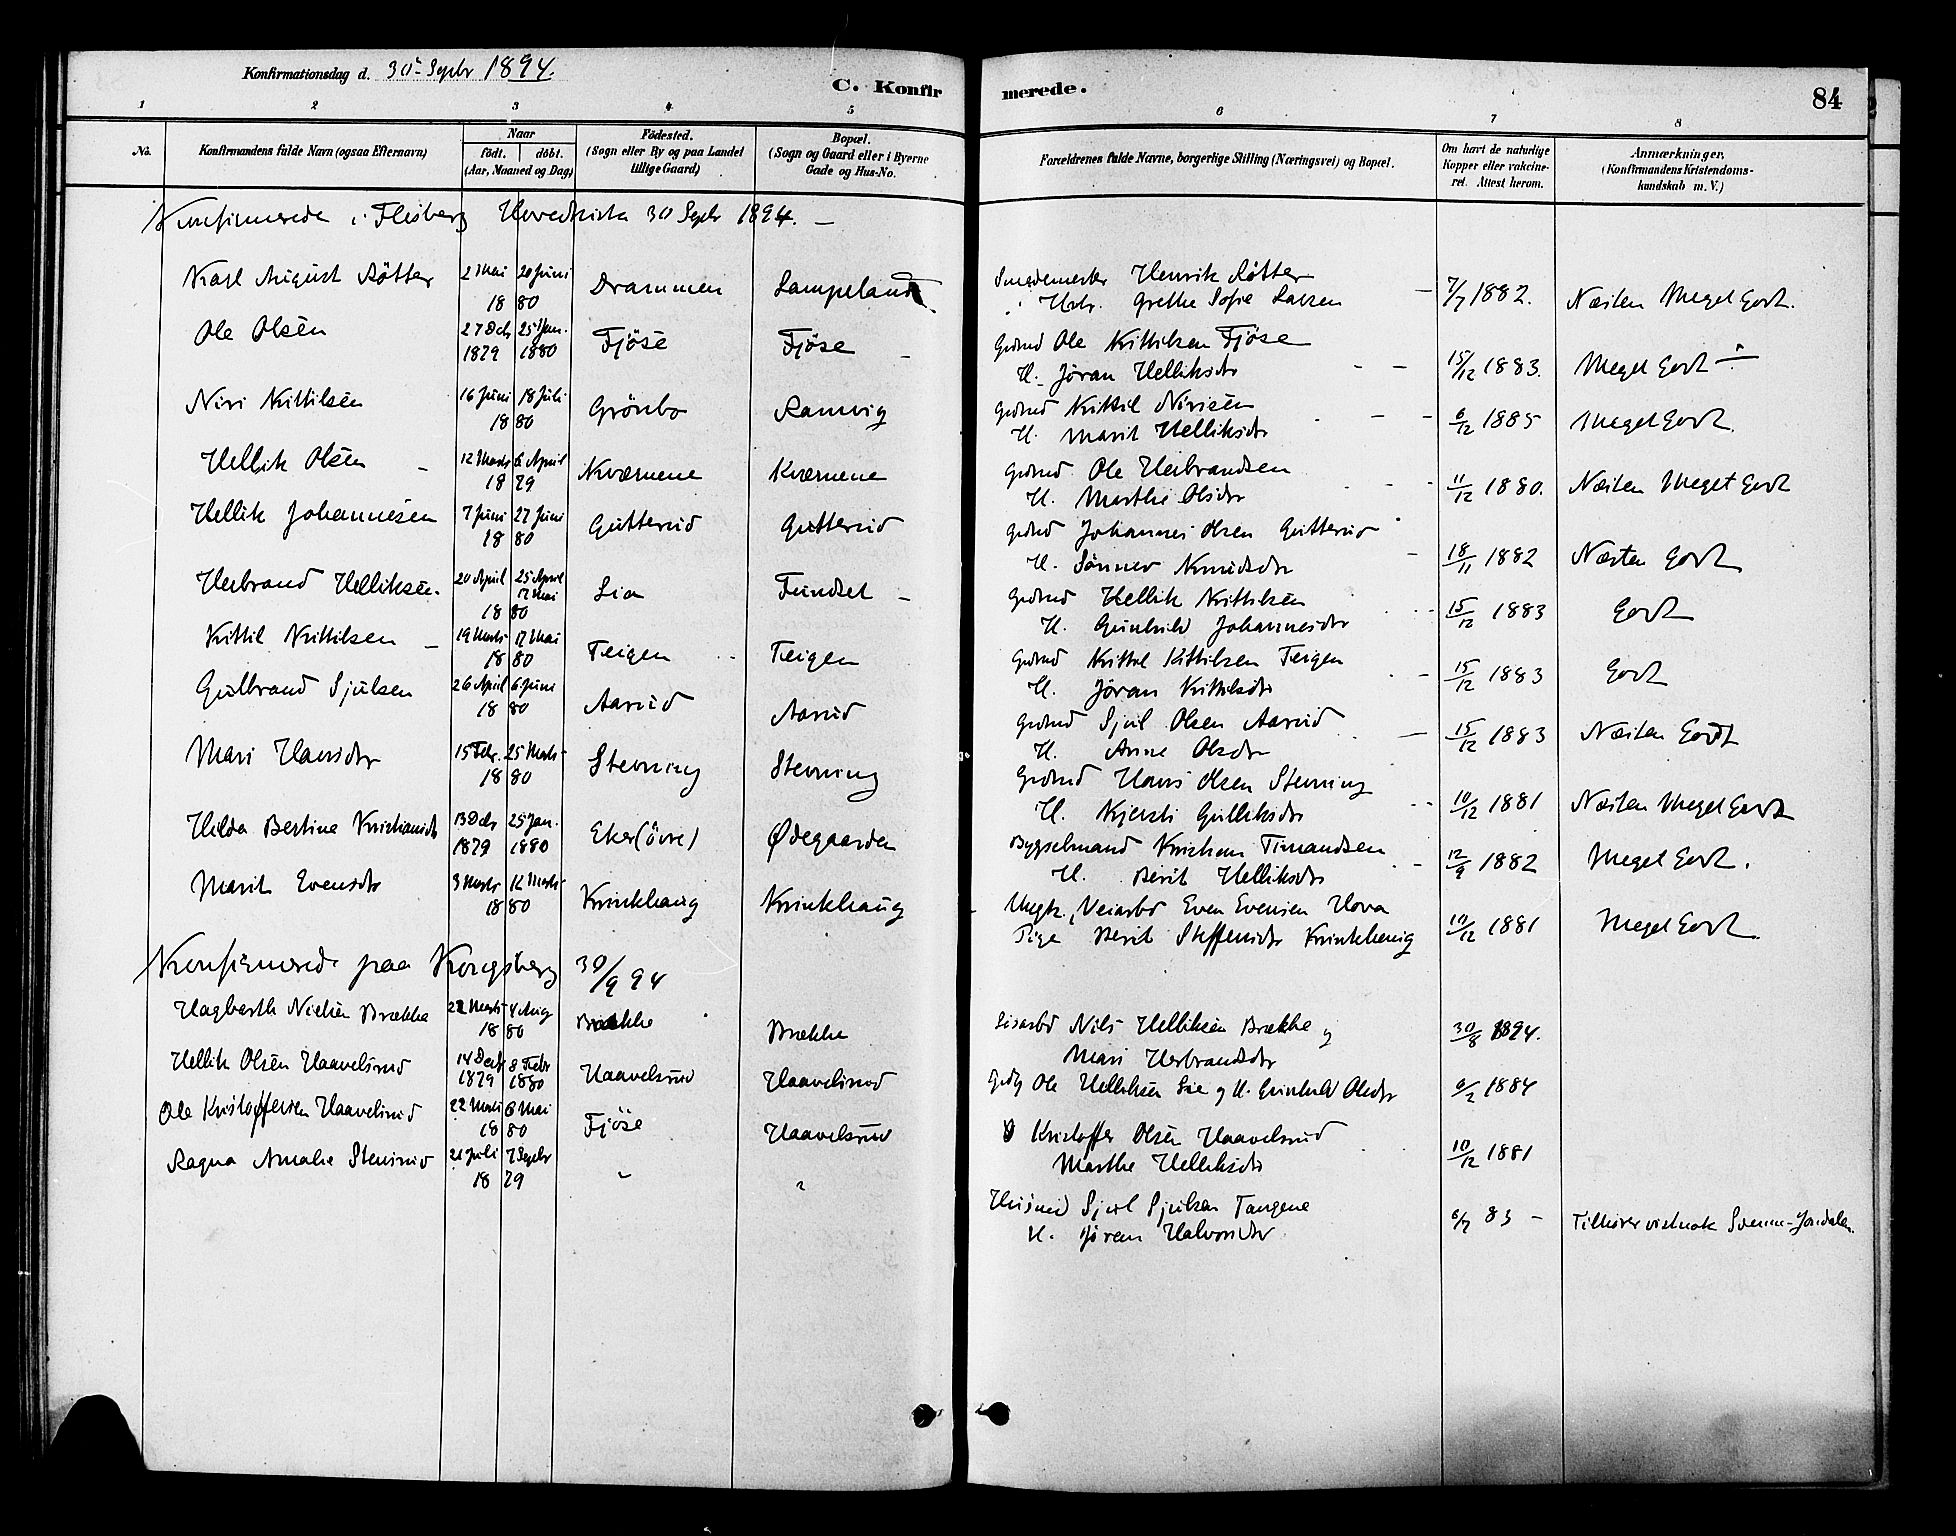 Konfirmationsdag d. 30te Septr 1894.
C. Konfirmerede.
84
1 2 3 4 5 6 7 8
No. Konfirmandens fulde Navn (ogsaa Efternavn) Naar födt. döbt. (Aar, Maaned og Dag) Födested. (Sogn eller By og paa Landet tillige Gaard) Bopæl. (Sogn og Gaard eller i Byerne Gade og Hus-No. Forældrenes fulde Navne, borgerlige Stilling (Næringsvei) og Bopæl. Om havt de naturlige Kopper eller vakcineret. Attest herom. Anmærkninger, (Konfirmandens Kristendomskundskab m. V.)
Konfirmerede i Flesberg Hovedkirke 30 Septr 1894. —
Karl August Rötter 2 Mai 20 Juni 1880 Drammen Lampeland Smedemester Henrik Rötter
Hstr. Grethe Sofie Larsen 7/7 1882. Næsten Meget Godt.
Ole Olsen 27 Dcb 1879 25 Jan. 1880 Fjöse Fjöse Gaardm Ole Kittilsen Fjöse
H. Jöran Helliksdtr 15/12 1883. Meget Godt ÷
Niri Kittilsen 16 Juni 18 Juli 1880 Grönbo Ramvig Gaardm Kittil Nirisen
H. Marit Helliksdtr 6/12 1885 Meget Godt.
Hellik Olsen 12 Marts 6 April 1879 Kværnene Kværnene Gaardm Ole Herbrandsen
H. Marthe Olsdtr 11/12 1880. Næsten Meget Godt
Hellik Johannesen 7 Juni 27 Juni 1880 Gutterud Gutterud Gaardm Johannes Olsen Gutterud
H. Sönnev Knudsdtr 18/11 1882 Næsten Godt
Herbrand Helliksen. 20 April 25 April 17 Mai 1880 Lia Fundset Gaardm Hellik Kittilsen
H. Gunhild Johannesdtr 15/12 1883 Godt
Kittil Kittilsen 19 Marts 17 Mai 1880 Teigen Teigen Gaardm Kittil Kittilsen Teigen
H. Jöran Kittilsdtr 15/12 1883 Godt
Gulbrand Sjulsen 26 April 6 Juni 1880 Aasrud Aasrud Gaardm Sjul Olsen Aasrud
H. Anne Olsdtr 15/12 1883 Næsten Godt
Mari Hansdtr 15 Febr. 25 Marts 1880 Stevning Stevning Gaardm Hans Olsen Stevning
H. Kjersti Gulliksdtr 10/12 1881 Næsten Meget Godt
Hilda Bertine Kristiansdtr 13 Dcb 1879 25 Jan. 1880 Eker (övre) Ødegaarden Bygselmand Kristian Timandsen
H. Berit Helliksdtr 12/9 1882 Meget Godt.
Marit Evensdtr 3 Marts 12 Marts 1880 Krinkhaug Krinkhaug Ungk. Veiarbd Even Evensen Hova
Pige Berit Steffensdtr Krinkhaug 10/12 1881 Meget Godt.
Konfirmerede paa Kongsberg 30/9 94
Hagbarth Nielsen Brække 22 Marts 4 Aug 1880 Brække Brække Nils Helliksen Brække og
Mari Herbrandsdtr 30/8 1894.
Hellik Olsen Haavelsrud 14 Decb 1879 8 Febr 1880 Haavelsrud Haavelsrud Ole Helliksen Lie og H. Gunhild Olsdtr 9/2 1884
Ole Kristoffersen Haavelsrud 22 Marts 6 Mai 1880 Fjöse Haavelsrud Kristoffer Olsen Haavelsrud
Marthe Helliksdtr 10/12 1881
Ragna Amalie Stensrud 21 Juli 7 Septr 1879 " " Husmd Sjul Sjulsen Tangene
H. Jöran Halvorsdtr 6/7 83 — Tilhører vistnok Svenne-Jondalen.